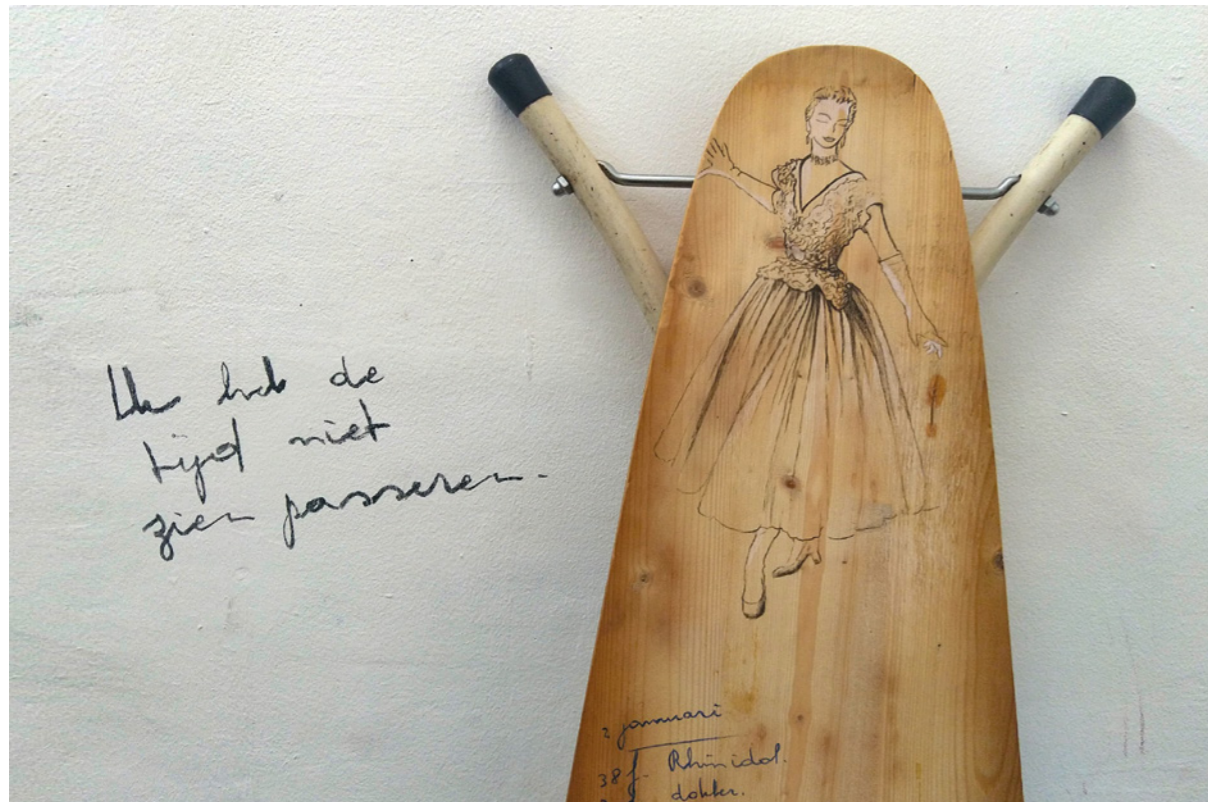 Ik heb de
tijd niet
zien passeren.
2 januari
38 f. Rhinidol.
dokter.